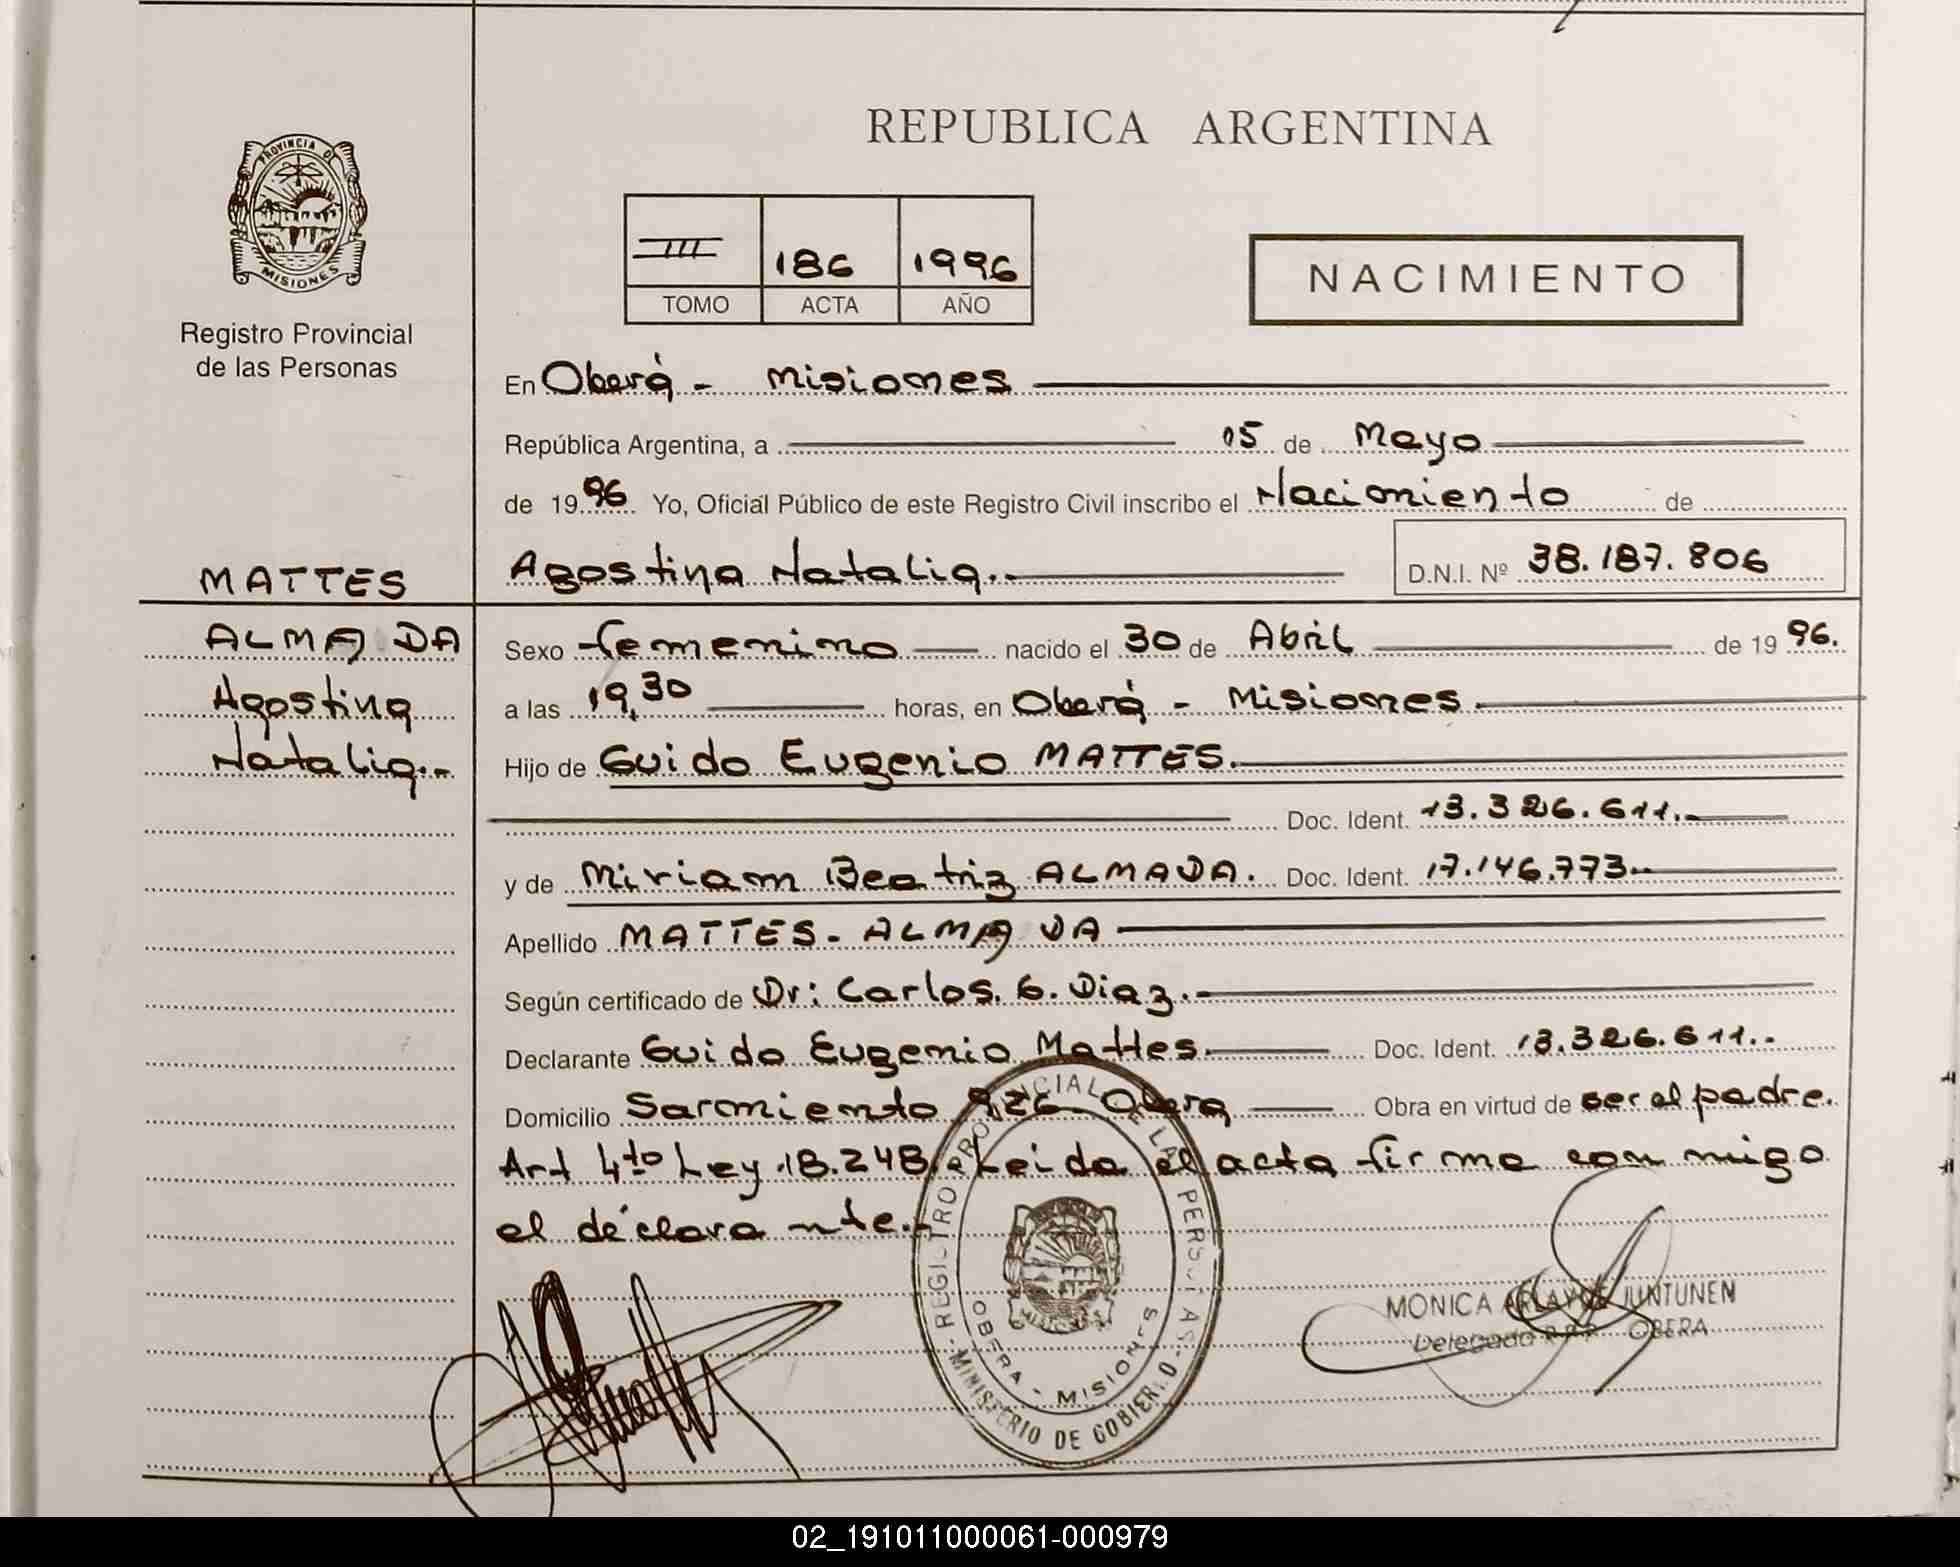 REPUBLICA ARGENTINA
PROVINCIA DE
MISIONES
Registro Provincial
de las Personas
III 186 1996
TOMO ACTA AÑO
NACIMIENTO
En Oberá - Misiones
República Argentina, a 05 de Mayo
de 1996 Yo, Oficial Público de este Registro Civil inscribo el Nacimiento de
MATTES
ALMADA
Agostina
Natalia.-
Agostina Natalia.-
D.N.I. Nº 38.187.806
Sexo femenino nacido el 30 de Abril de 1996.
a las 19,30 horas, en Oberá - Misiones.
Hijo de Guido Eugenio MATTES.
Doc. Ident. 13.326.611.-
y de Miriam Beatriz ALMADA. Doc. Ident. 17.146.773.-
Apellido MATTES - ALMADA
Según certificado de Dr: Carlos. G. Diaz.-
Declarante Guido Eugenio Mattes. Doc. Ident. 13.326.611.-
Domicilio Sarmiento 926 Obera Obra en virtud de ser el padre.
Art 4to Ley 18.248. Leida el acta firma con migo
el declarante.-
REGISTRO PROVINCIAL DE LAS PERSONAS
OBERA - MISIONES
MINISTERIO DE GOBIERNO
MONICA JUNTUNEN
Delegada R.P.P. OBERA
02_191011000061-000979